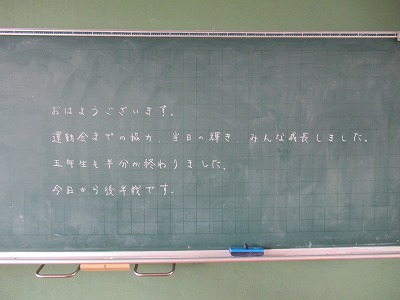 おはようございます。
運動会までの協力、当日の輝き みんな成長しました。
五年生も半分が終わりました。
今日から後半戦です。